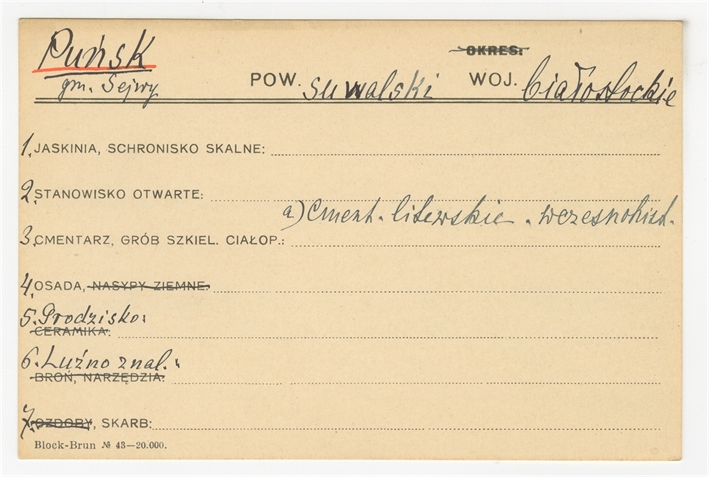 Puńsk
gm. Sejwy
OKRES:
POW. suwalski WOJ. białostockie
1. JASKINIA, SCHRONISKO SKALNE:
2. STANOWISKO OTWARTE:
a) Cment. litewskie. wczesnohist.
3. CMENTARZ, GRÓB SZKIEL. CIAŁOP.:
4. OSADA, NASYPY ZIEMNE:
5. Grodzisko:
CERAMIKA:
6. Luźno znal.:
BROŃ, NARZĘDZIA:
7. OZDOBY, SKARB:
Block-Brun № 43—20.000.